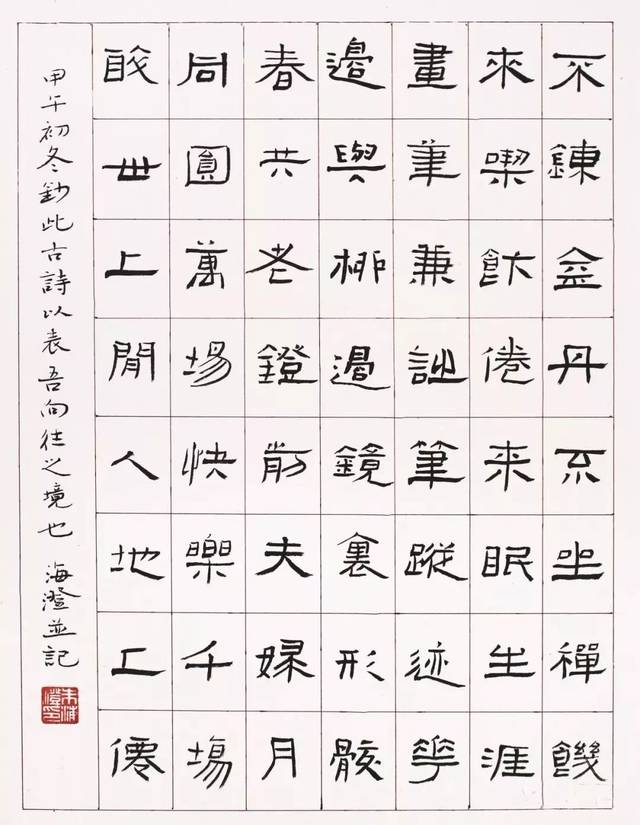 不鍊金丹不坐禪饑
來喫飯倦來眠生涯
畫筆兼詩筆蹤迹花
邊與柳邊鏡裏形骸
春共老鐙前夫婦月
同圓萬場快樂千場
世上閒人地上僊
甲午初冬鈔此古詩以表吾向往之境也 海澄並記